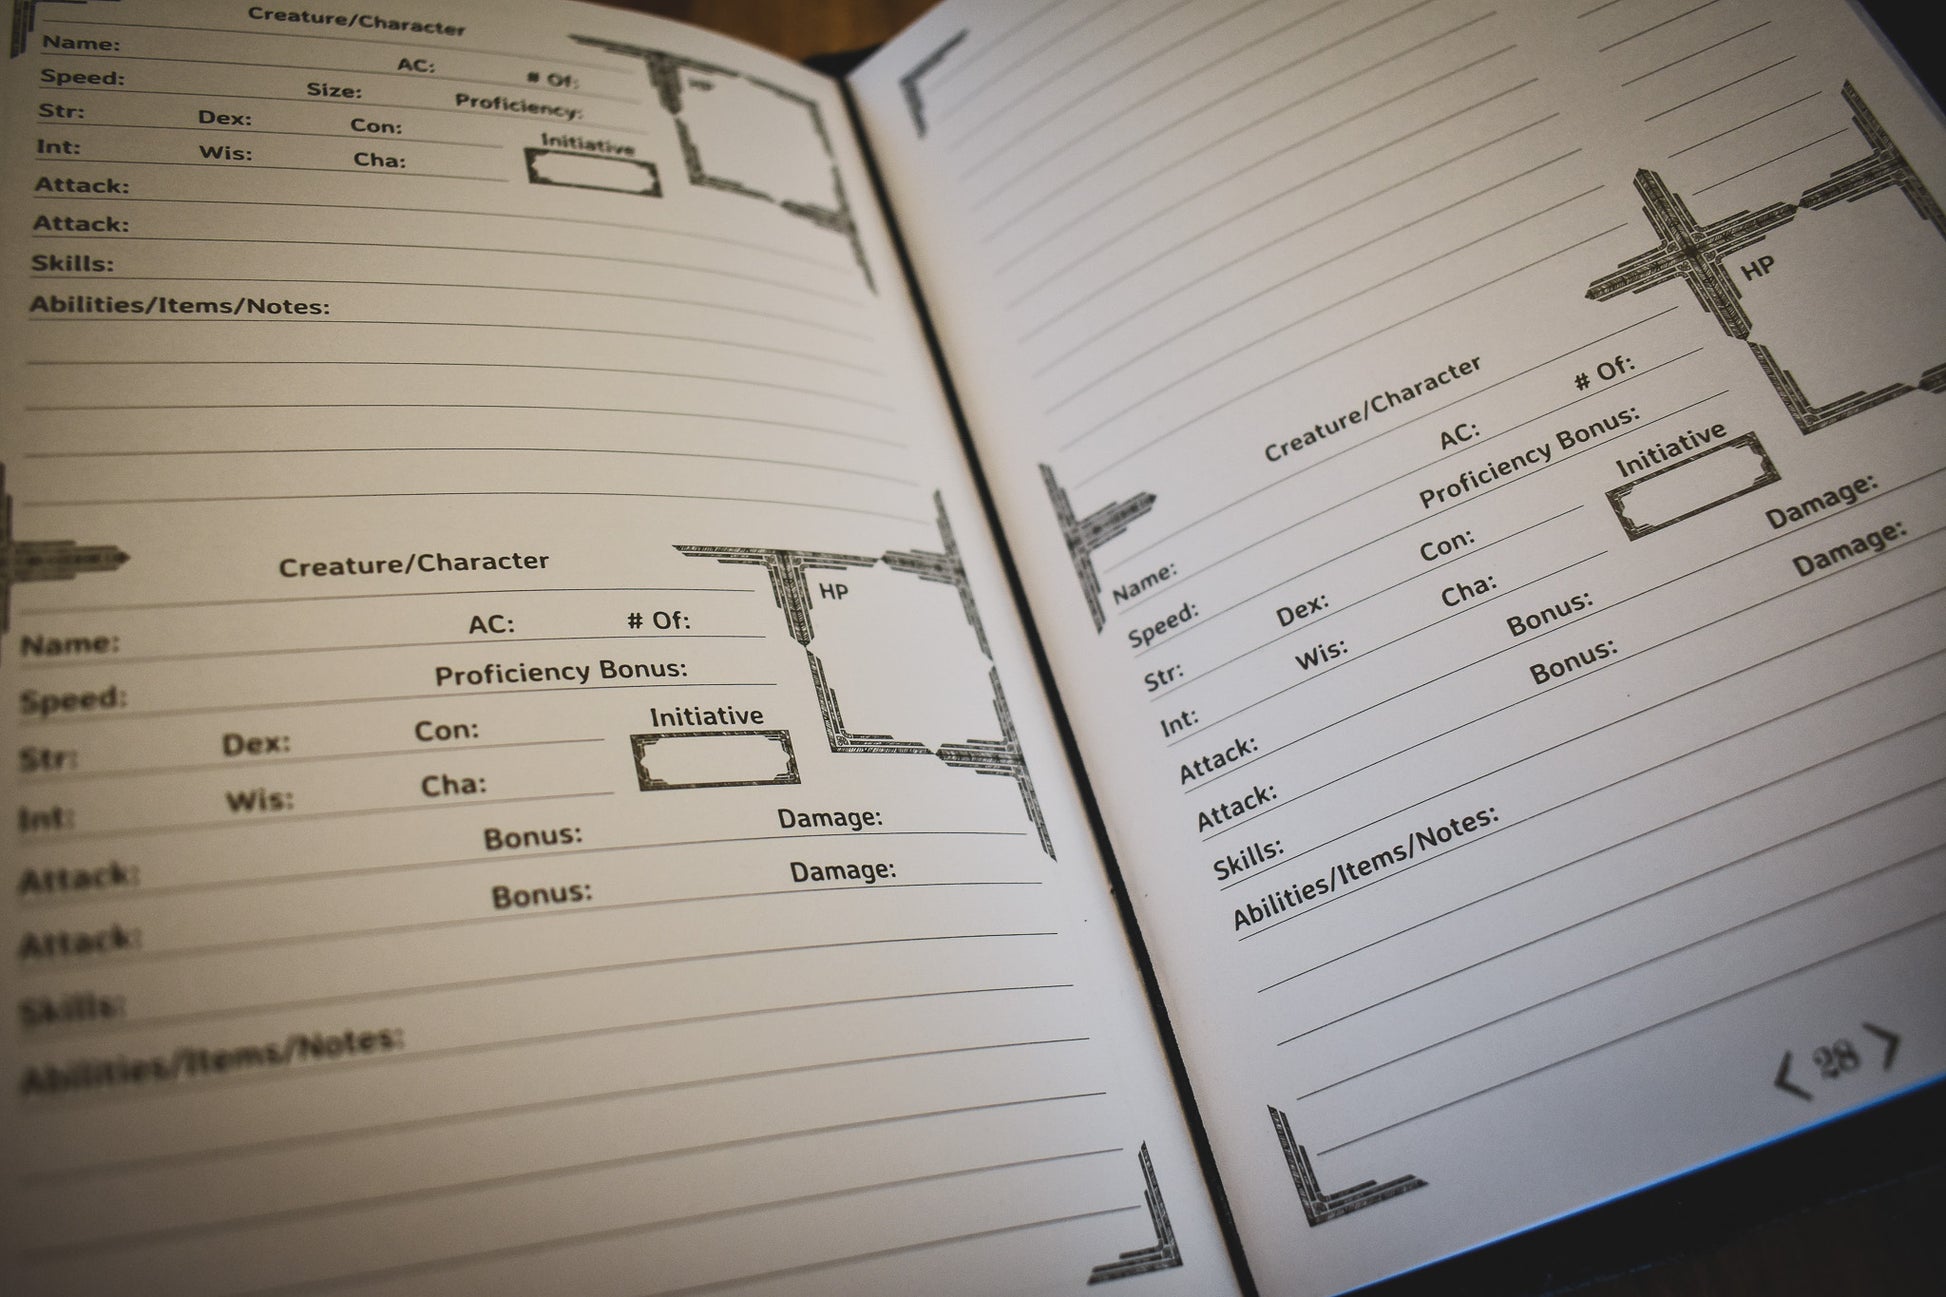 Creature/Character
Name: AC: # Of:
HP
Speed: Size: Proficiency:
Str: Dex: Con:
Initiative
Int: Wis: Cha:
Attack:
Attack:
Skills:
Abilities/Items/Notes:
Creature/Character
HP
Name: AC: # Of:
Speed: Proficiency Bonus:
Initiative
Str: Dex: Con:
Int: Wis: Cha:
Attack: Bonus: Damage:
Attack: Bonus: Damage:
Skills:
Abilities/Items/Notes:
Creature/Character
HP
Name: AC: # Of:
Speed: Proficiency Bonus:
Initiative
Str: Dex: Con:
Int: Wis: Cha:
Attack: Bonus: Damage:
Attack: Bonus: Damage:
Skills:
Abilities/Items/Notes:
28